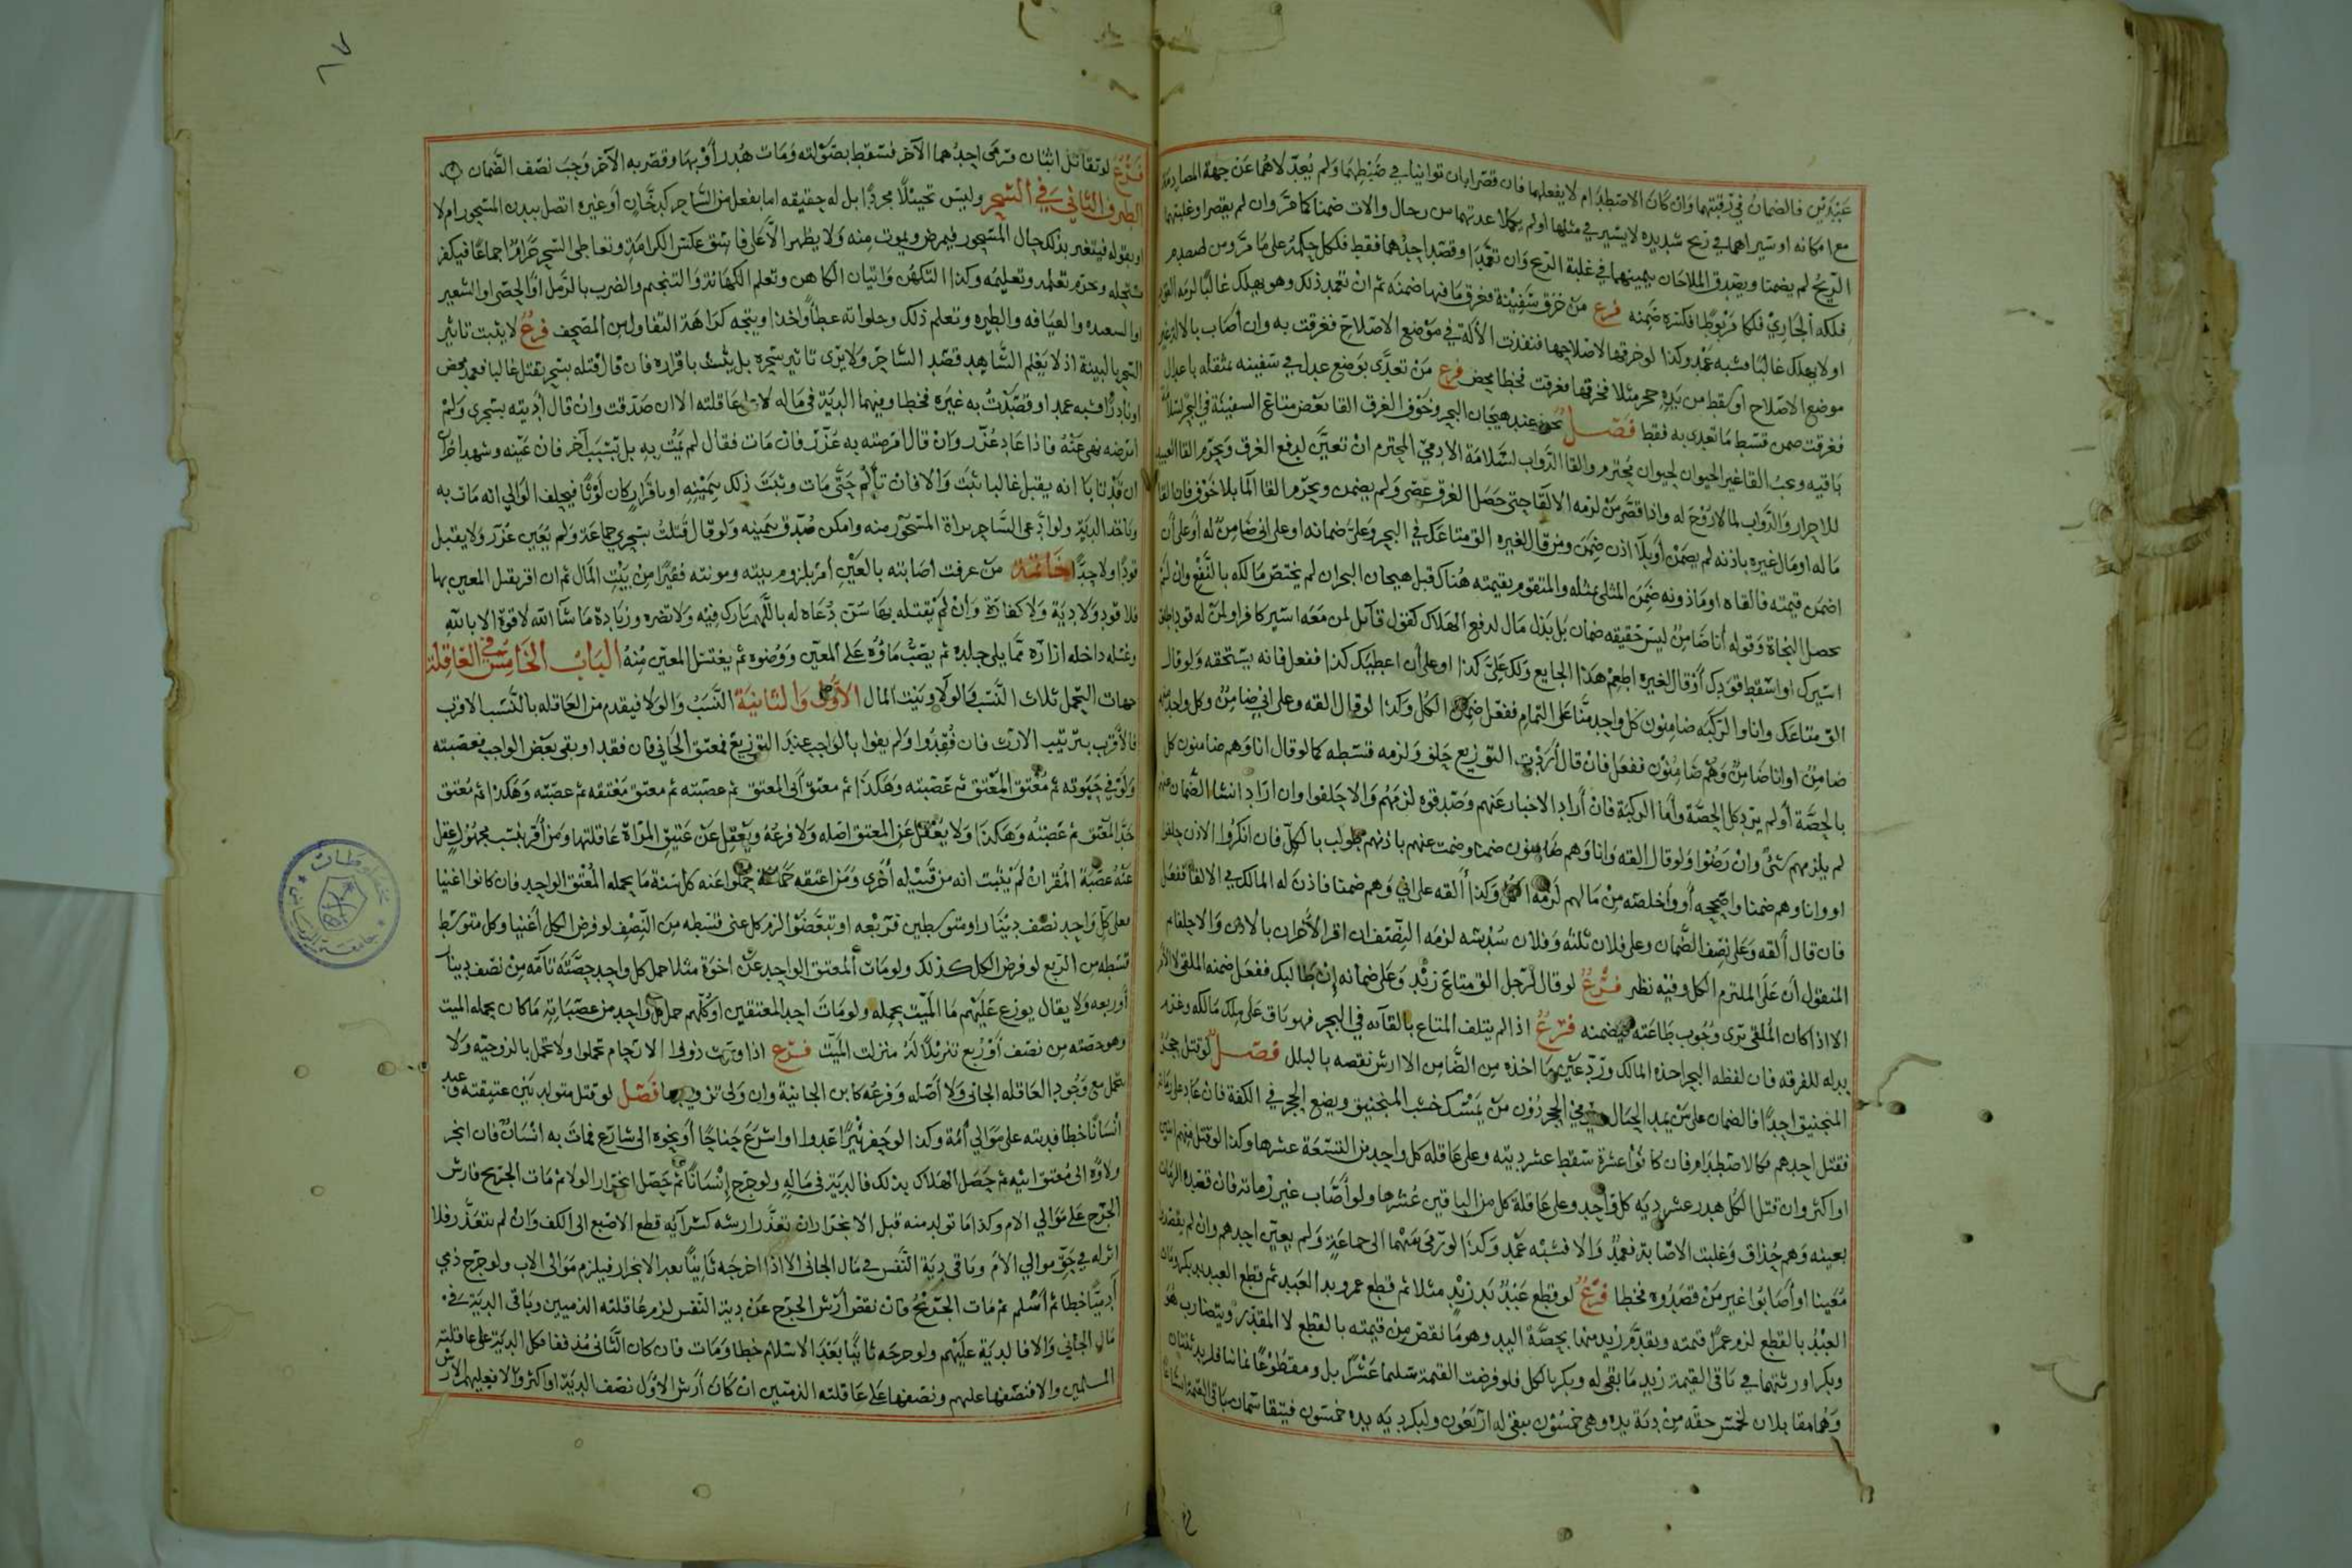 عبدين فالضمان في رقبتهما وان كان الاصطدام لا بفعلهما فان قصرا بان توانيا في ضبطهما ولم يعدلاهما عن جهة المصادمة
مع امكانه او سيراهما في ريح شديده لا يسير في مثلها او لم يكملا عدتهما من رجال والات ضمنا كما مر وان لم يقصرا وغلبتهما
الريح لم يضمنا ويصدق الملاحان بيمينهما في غلبة الريح وان تعمدا او قصد احدهما فقط فلكل حكمه على ما مر ومن صدم
فلكه الجاري فلكا مربوطا فكسره ضمنه فرع من خرق سفينة فغرق ما فيها ضمنه ثم ان تعمد ذلك وهو يهلك غالبا لزمه القود
او لا يهلك غالبا فشبه عمد وكذا لو خرقها لاصلاحها فنفذت الألة في موضع الاصلاح فغرقت به وان أصاب بالالة غير
موضع الاصلاح او سقط من يده حجر مثلا فخرقها فغرقت فخطا محض فرع من تعدى بوضع عدل في سفينه مثقله باعدال
فغرقت ضمن قسط ما تعدى به فقط فصل يجوز عند هيجان البحر وخوف الغرق القا بعض متاع السفينة في البحر لسلامة
باقيه ويجب القا غير الحيوان لحيوان محترم والقا الدواب لسلامة الادمي المحترم ان تعين لدفع الغرق ويحرم القا العبيد
للاحرار والدواب لما لا روح له واذا قصر من لزمه الالقا حتى حصل الغرق عصى ولم يضمن ويحرم القا المال بلا خوف فان القا
ماله او مال غيره باذنه لم يضمن أو بلا اذن ضمن ومن قال لغيره الق متاعك في البحر وعلي ضمانه او على اني ضامن له أو على أن
اضمن قيمته فالقاه او ماذونه ضمن المثلي بمثله والمتقوم بقيمته هناك قبل هيجان البحر ان لم يختص مالكه بالنفع وان لم
يحصل النجاة وقوله أنا ضامن ليس حقيقه ضمان بل بذل مال لدفع الهلاك كقول قائل لمن معه اسير كافر او لمن له قود اطلق
اسيرك او اسقط قودك أو قال لغيره اطعم هذا الجايع ولك علي كذا او على أن اعطيك كذا ففعل فانه يستحقه ولو قال
الق متاعك وانا والركبه ضامنون كل واحد منا على التمام ففعل ضمن الكل وكذا لو قال القه وعلى اني ضامن وكل واحد منهم
ضامن او انا ضامن وهم ضامنون ففعل فان قال أردت التوزيع حلف ولزمه قسطه كما لو قال انا وهم ضامنون كل
بالحصة أو لم يرد كل الحصة وأما الركبة فان أراد الاخبار عنهم وصدقوه لزمهم والا حلفوا وان اراد انشا الضمان عنهم
لم يلزمهم شئ وان رضوا ولو قال القه وانا وهم ضامنون ضمنا وضمت عنهم باذنهم طولب بالكل فان انكروا الاذن حلفوا
او وانا وهم ضمنا واصححه أو وأخلصه من مالهم لزمه الكل وكذا ألقه على اني وهم ضمنا فاذن له المالك في الالقا ففعل
فان قال ألقه وعلى نصف الضمان وعلى فلان ثلثه وفلان سدسه لزمه النصف ان اقر الأخران بالاذن والا حلفا ثم
المنقول أن على الملتزم الكل وفيه نظر فرع لو قال لرجل الق متاع زيد وعلى ضمانه ان طالبك ففعل ضمنه الملقي لا الآمر
الا اذا كان الملقى يرى وجوب طاعته فيضمنه فرع اذا لم يتلف المتاع بالقآئه في البحر فهو باق على ملك مالكه وغرم
بدله للفرقه فان لفظه البحر اخذه المالك ورد عين ما اخذه من الضامن الا ارش نقصه بالبلل فصل لو قتل حجر
المنجنيق احدا فالضمان على من يمد الحبال ومن الحجر دون من يمسك خشب المنجنيق ويضع الحجر في الكفة فان عاد على رماته
فقتل احدهم فكالاصطدام فان كانوا عشرة سقط عشر ديته وعلى عاقله كل واحد من التسعة عشرها وكذا لو قتل منهم اثنين
او اكثر وان قتل الكل هدر عشر ديه كل واحد وعلى عاقلة كل من الباقين عشرها ولو أصاب غير رماته فان قصده الرماة
بعينه وهم حذاق وغلبت الاصابة فعمد والا فشبه عمد وكذا لو رموا بسهما الى جماعة ولم يعين احدهم وان لم يقصدوا
معينا او أصابوا غير من قصدوه فخطا فرع لو قطع عبد يد زيد مثلا ثم قطع عمرو يد العبد ثم قطع العبد يد بكر ومات
العبد بالقطع لزم عمرا قيمته ويقدم زيد منها بحصة اليد وهو ما نقص من قيمته بالقطع لا المقدر ويتضارب هو
وبكر او رثتهما في باقي القيمة زيد ما بقي له وبكر بالكل فلو فرضت القيمة سليما عشرا بل ومقطوعا ثمانيا فلزيد ثنتان
وهما مقابلان لخمس حقه من دية يده وهي خمسون يبقى له اربعون ولبكر ديه يده خمسون فيتقاسمان باقي القيمة اتساعا
فرع لو تقاتل اثنان فرمى احدهما الآخر فسقط بصولته ومات هدر أو بها وقصر به الآخر وجب نصف الضمان
الطرف الثاني في السحر وليس تخييلا مجردا بل له حقيقه اما بفعل من الساحر كدخان أو غيره اتصل ببدن المسحور ام لا
او بقوله فيتغير بذلك حال المسحور فيمرض ويموت منه ولا يظهر الا على فاسق عكس الكرامة وتعاطى السحر حرام اجماعا فيكفر
مستحله وحرم تعلمه وتعليمه وكذا التكهن واتيان الكاهن وتعلم الكهانة والتنجيم والضرب بالرمل او الحصى او الشعير
او الشعبده والعيافه والطيره وتعلم ذلك وحلوانه عطا وأخذا ويتجه كراهة التفاول من المصحف فرع لا يثبت تاثير
السحر بالبينة اذ لا يعلم الشاهد قصد الساحر ولا يرى تاثير سحره بل يثبت باقراره فان قال قتلته بسحر يقتل غالبا فعمد محض
او نادرا فشبه عمد او قصدت به غيره فخطا وفيهما الدية في ماله لا على عاقلته الا ان صدقت وان قال أذيته بسحري ولم
امرضه نهى عنه فاذا عاد عزر وان قال امرضته به عزر فان مات فقال لم يمت به بل بسبب آخر فان عينه وشهد اخران
ان قدتابا انه يقبل غالبا ثبت والا فان تألم حتى مات وثبت ذلك ببينه او باقراره كان لوثا فيحلف الوالي انه مات به
وياخذ الدية ولو ادعى الساحر براة المسحور منه وامكن صدق بيمينه ولو قال قتلت بسحري جماعة ولم يعين عزر ولا يقبل
قودا ولا حدا خاتمة من عرفت اصابته بالعين أمر بلزوم بيته ومونته فقيرا من بيت المال ثم ان اقر بقتل المعين بها
فلا قود ولا دية ولا كفارة وان لم يقتله بها سن دعاه له باللهم بارك فيه ولا تضره وزيادة ما شآ الله لا قوة الا بالله
وغسله داخله ازاره مما يلي جلده ثم يصب ماؤه على المعين ووضوه ثم يغتسل المعين منه الباب الخامس في العاقلة
جهات التحمل ثلاث النسب والولا وبيت المال الأولى والثانية النسب والولا فيقدم من العاقله بالنسب الاقرب
فالأقرب بترتيب الارث فان فقدوا ولم يفوا بالواجب عند التوزيع فمعتق الجاني فان فقد او بقى بعض الواجب فعصبته
ولو في حيوته ثم معتق المعتق ثم عصبته وهكذا ثم معتق أبي المعتق ثم عصبته ثم معتق معتقه ثم عصبته وهكذا ثم معتق
جد المعتق ثم عصبته وهكذا ولا يعقل عن المعتق اصله ولا فرعه ويعقل عن عتيق المرأة عاقلتها ومن أقر بنسب مجهول عقل
عنه عصبة المقر ان لم يثبت انه من قبيله أخرى ومن اعتقه جماعة تحملوا عنه كل سنة ما يحمله المعتق الواحد فان كانوا اغنيا
فعلى كل واحد نصف دينار او متوسطين فربعه او تبعضوا لزم كل غني قسطه من النصف لو فرض الكل أغنيا وكل متوسط
قسطه من الربع لو فرض الكل كذلك ولو مات المعتق الواحد عن اخوة مثلا حمل كل واحد حصته تامه من نصف دينار
أو ربعه ولا يقال يوزع عليهم ما الميت يحمله ولو مات احد المعتقين او كلهم حمل كل واحد من عصباته ما كان يحمله الميت
وهو حصته من نصف أو ربع تنزيلا له منزلت الميت فرع اذا ورث ذوو الارحام تحملوا ولا تحمل بالزوجيه ولا
يتحمل مع وجود العاقله الجاني ولا أصله وفرعه كابن الجانية وان ولى تزويجها فصل لو قتل متولد بين عتيقته وعبد
انسانا خطا فديته على موالي أمه وكذا لو حفر بئرا عدوا او اشرع جناحا أو نحوه الى شارع فمات به انسان فان انجر
ولاؤه الى معتق ابيه ثم حصل الهلاك بذلك فالدية في ماله ولو جرح إنسانا ثم حصل انجرار الولا ثم مات الجريح فارش
الجرح على موالي الام وكذا ما تولد منه قبل الانجرار ان تعذر ارشه كسراية قطع الاصبع الى الكف وان لم يتعذر فلا
اثر له في حق موالي الأم وباقي دية النفس في مال الجاني الا اذا اخرجه ثانيا بعد الانجرار فيلزم موالى الاب ولو جرح ذمي
آدميا خطا ثم أسلم ثم مات الجريح فان نقص أرش الجرح عن دية النفس لزم عاقلته الذميين وباقي الدية في
مال الجاني والا فالدية عليهم ولو جرحه ثانيا بعد الاسلام خطا ومات فان كان الثاني مذففا فكل الدية على عاقلته
المسلمين والا فنصفها عليهم ونصفها على عاقلته الذميين ان كان أرش الاول نصف الدية او اكثر والا فعليهم الأرش